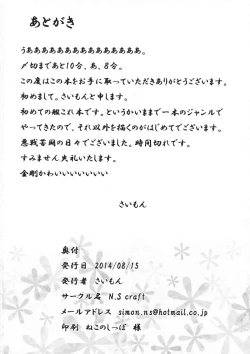 あとがき
うあああああああああああああああ。
〆切まであと10分、あ、8分。
この度はこの本をお手に取っていただきありがとうございます。
初めまして。さいもんと申します。
初めての艦これ本です。というかいままで一本のジャンルで
やってきたので、それ以外を描くのがはじめてでございます。
悪戦苦闘の日々でございました。時間切れです。
すみません失礼いたします。
金剛かわいいいいいいい
さいもん
奥付
発行日 2014/08/15
発行者 さいもん
サークル名 N.S craft
メールアドレス simon.ns@hotmail.co.jp
印刷 ねこのしっぽ 様